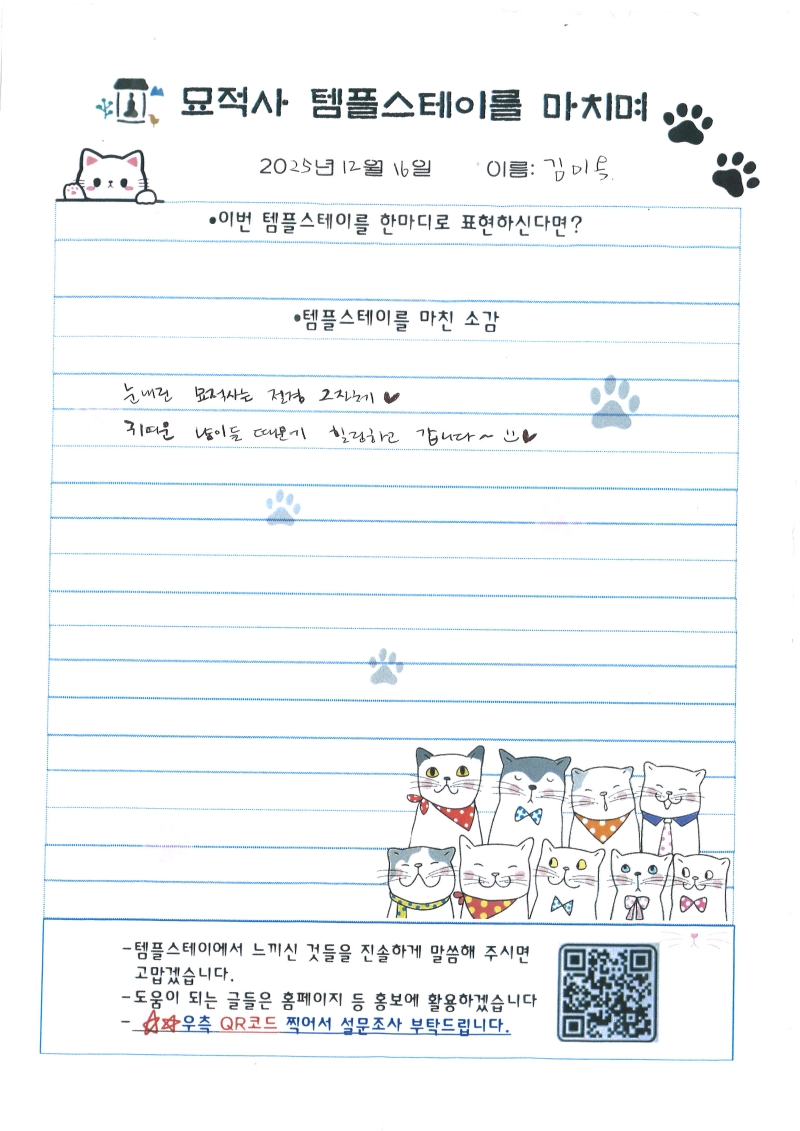 묘적사 템플스테이를 마치며
2025년 12월 16일 이름: 김미옥
•이번 템플스테이를 한마디로 표현하신다면?
•템플스테이를 마친 소감
눈내린 묘적사는 절경 그자체 ♥
귀여운 냥이들 때문에 힐링하고 갑니다~ ♥
-템플스테이에서 느끼신 것들을 진솔하게 말씀해 주시면
고맙겠습니다.
-도움이 되는 글들은 홈페이지 등 홍보에 활용하겠습니다
- ☆☆우측 QR코드 찍어서 설문조사 부탁드립니다.